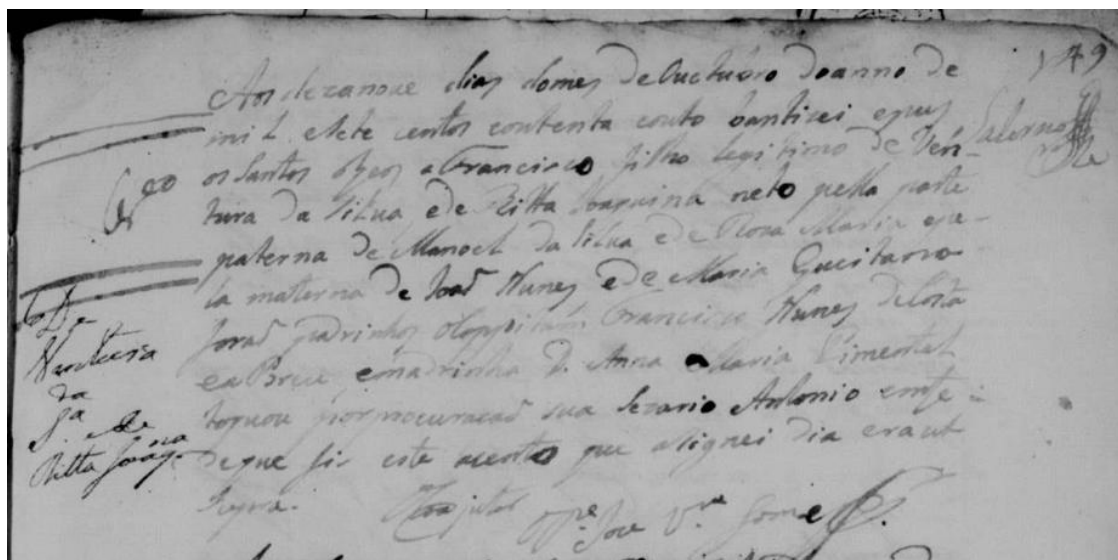 149
Aos dezanove dias domes deOuctubro doanno de
mil esete centos eoutenta eouto bautizei epus
os Santos oleos aFrancisco filho legitimo de Ven-
tura da Silva ede Ritta Joaquina neto pella parte
paterna de Manoel da Silva ede Roza Maria epe-
la materna de Joaõ Nunes ede Maria Caeitana
foraõ padrinhos oCappitam Francisco Nunes deCosta
eaBreu emadrinha D. Anna Maria Pimentel
toquou por procuracaõ sua Antonio emfe
deque fis este acento que asignei dia eraut
supra.
Fr.co
de
Ventura
da
Sa
e de
Ritta Joaq.na